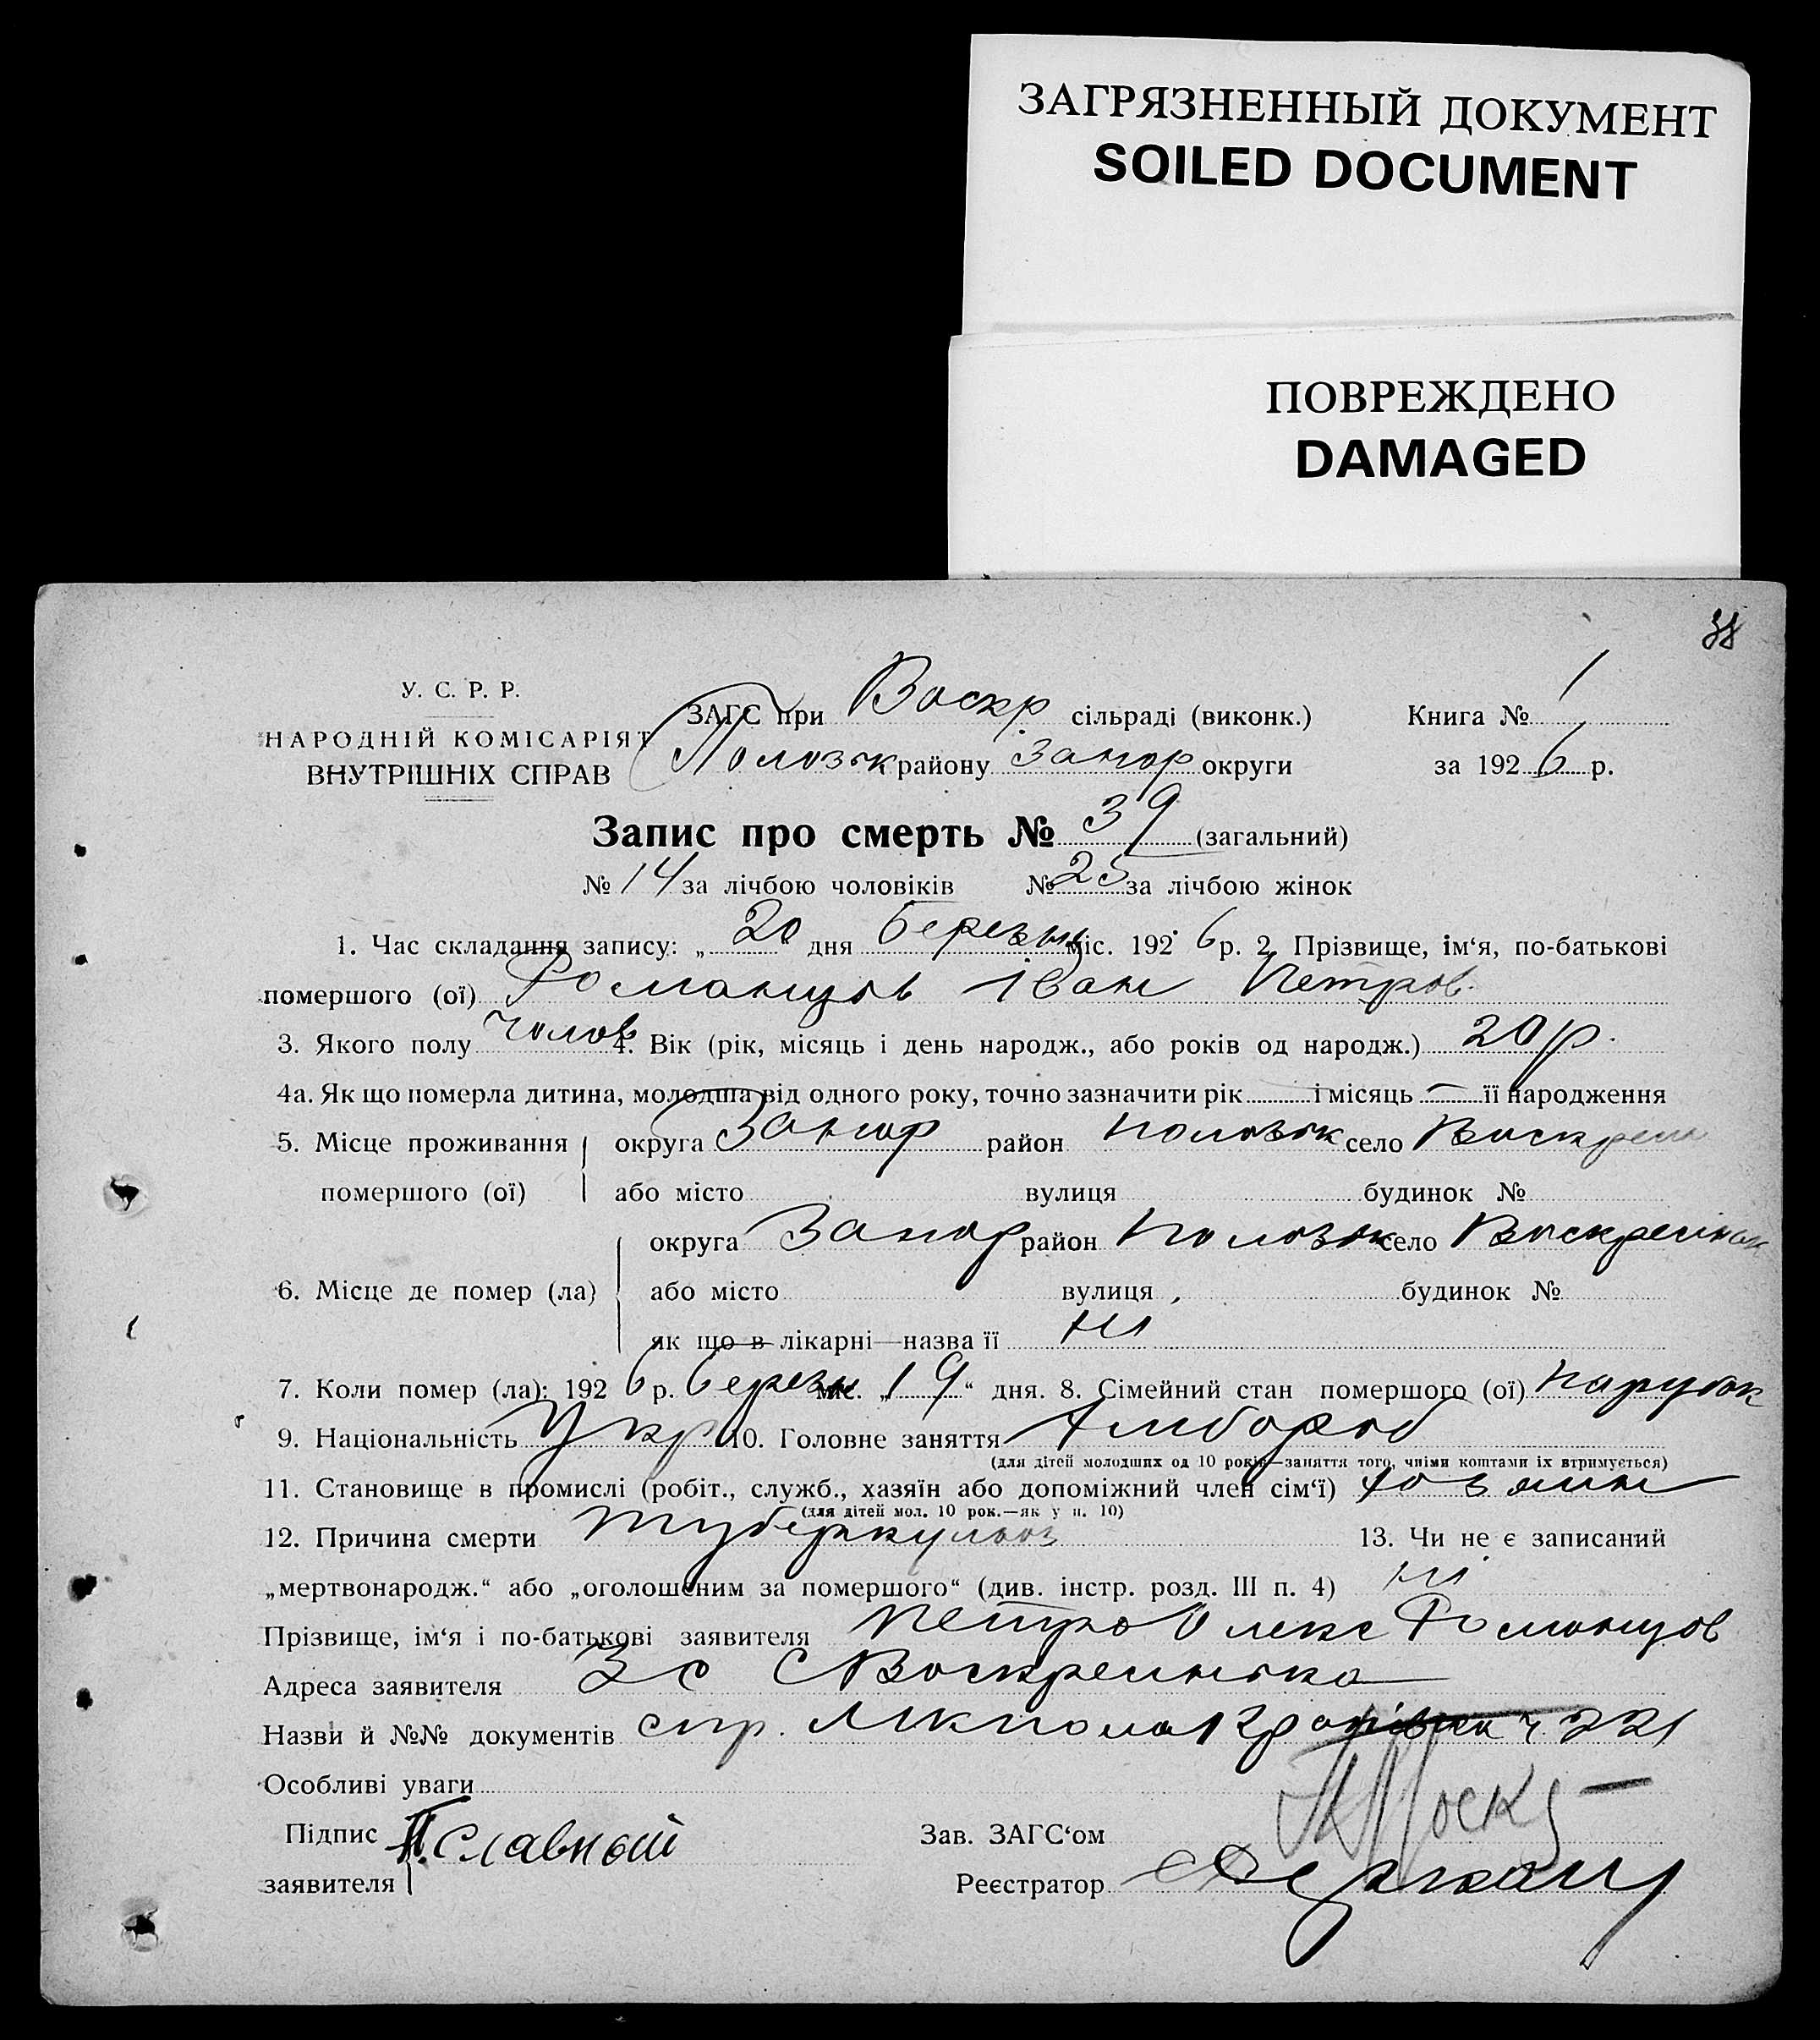 ЗАГРЯЗНЕННЫЙ ДОКУМЕНТ
SOILED DOCUMENT
ПОВРЕЖДЕНО
DAMAGED
38
У. С. Р. Р.
НАРОДНІЙ КОМІСАРІЯТ
ВНУТРІШНІХ СПРАВ
ЗАГС при Воскр сільраді (виконк.) Книга № 1
Полозьк району Запор округи за 1926 р.
Запис про смерть № 39 (загальний)
№ 14 за лічбою чоловіків № 25 за лічбою жінок
1. Час складання запису: „ 20 дня березня міс. 1926 р. 2. Прізвище, ім‘я, по-батькові
помершого (ої) Романцов Іван Петров.
3. Якого полу чолов 4. Вік (рік, місяць і день народж., або років од народж.) 20 р.
4а. Як що померла дитина, молодша від одного року, точно зазначити рік — і місяць — її народження
5. Місце проживання округа Запор район Полозьк село Воскресен
помершого (ої) або місто вулиця будинок №
округа Запор район Полозьк село Воскресінськ
6. Місце де помер (ла) або місто вулиця будинок №
як що в лікарні—назва її ні
7. Коли помер (ла): 1926 р. березн міс. „ 19 “ дня. 8. Сімейний стан помершого (ої) парубок
9. Національність Укр 10. Головне заняття Хлібороб
(для дітей молодших од 10 років—заняття того, чиїми коштами їх втримується)
11. Становище в промислі (робіт., служб., хазяїн або допоміжний член сім‘ї) хозяин
(для дітей мол. 10 рок.—як у п. 10)
12. Причина смерти туберкульоз 13. Чи не є записаний
„мертвонародж.“ або „оголошеним за помершого“ (див. інстр. розд. III п. 4) ні
Прізвище, ім‘я і по-батькові заявителя Петро Олекс Романцов
Адреса заявителя с Воскресинька
Назви й №№ документів спр. ч. 221
Особливі уваги
Підпис П. Славной
заявителя
Зав. ЗАГС‘ом
Реєстратор